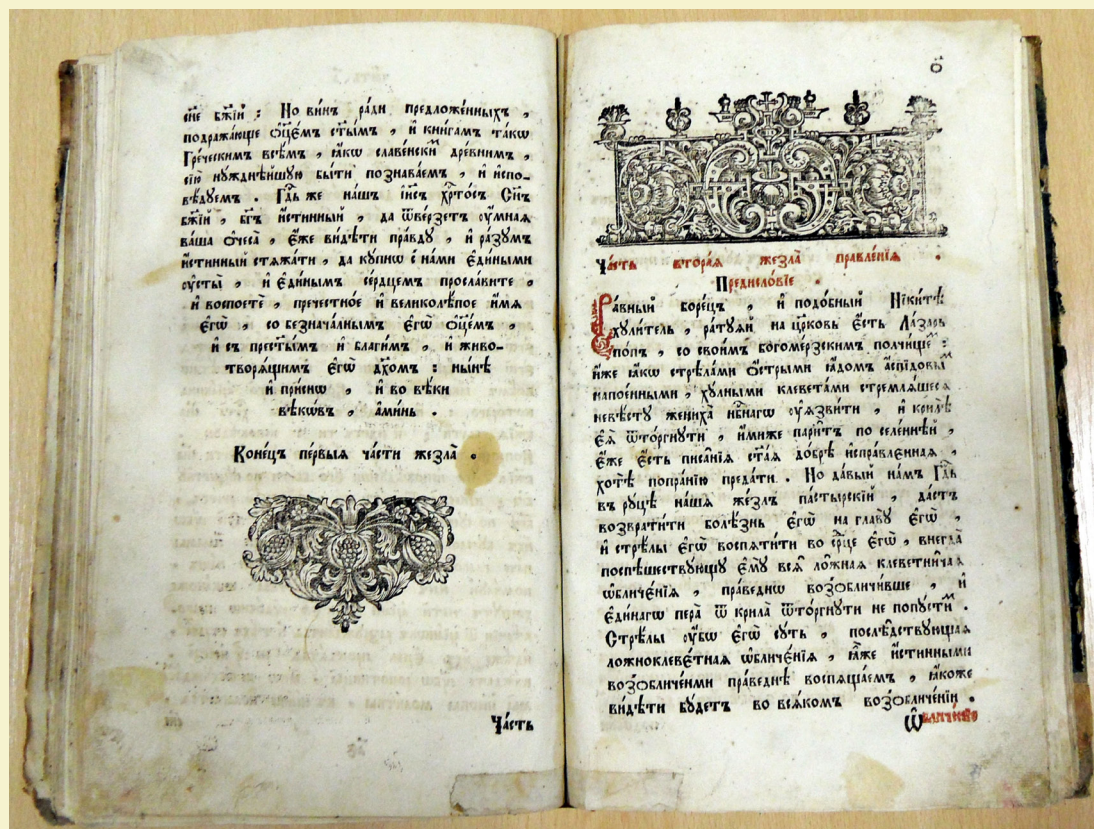 сїе бж҃їй : Но ви́нъ ра́ди предложе́нныхъ ,
подража́юще ѻ҆ц҃є́мъ ст҃ы́мъ , и҆ кни́гамъ та́кѡ
Гре́ческимъ всѣ́мъ , ꙗ҆́кѡ славе́нски̑мъ дре́внимъ ,
сїю̀ нꙋжднѣ́йшꙋю бы́ти познава́емъ , и҆ и҆спо-
вѣ́дꙋемъ . Гд҇ь же на́шъ і҆и҃съ хр҇то́съ Сн҃ъ
бж҃їй , бг҃ъ и҆́стинный , да ѿве́рзетъ ᲂу҆́мная
ва́ша ѻ҆чеса̀ , є҆́же ви́дѣти пра́вдꙋ , и҆ ра́зꙋмъ
и҆́стинный стѧжа́ти , да кꙋ́пнѡ с̾ на́ми є҆ди́ными
ᲂу҆сты̀ , и҆ є҆ди́нымъ се́рдцемъ просла́вите ,
и҆ воспое́те , пречестно́е и҆ великолѣ́пое и҆́мѧ
є҆гѡ̀ , со безнача́лнымъ є҆гѡ̀ ѻ҆ц҃е́мъ ,
и҆ съ прест҃ы́мъ и҆ благи́мъ , и҆ живо-
творѧ́щимъ є҆гѡ̀ дх҃омъ : ны́нѣ
и҆ при́снѡ , и҆ во вѣ́ки
вѣкѡ́въ , а҆ми́нь .
Коне́цъ пе́рвыѧ ча́сти жезла̀ .
Ча́сть
о҃
Ча́сть втора́ѧ жезла̀ правле́нїѧ .
Предисло́вїе .
Ра́вный боре́цъ , и҆ подо́бный Ники́тѣ
хꙋли́тель , ратꙋ́ѧй на цр҃ковь є҆́сть Ла́зарь
по́пъ , со свои́мъ богоме́рзскимъ полчи́щемъ :
и҆́же ꙗ҆́кѡ стрѣ́лами ѻ҆́стрыми ꙗ҆́домъ а҆спі́довымъ
напое́нными , хꙋ́лными клевета́ми стремлѧ́шесѧ
невѣ́стꙋ жениха̀ нб҇наго ᲂу҆ѧзви́ти , и҆ крилѣ̀
є҆ѧ̀ ѿто́ргнꙋти , и҆́миже пари́тъ по селе́ннѣй ,
є҆́же є҆́сть писа̑нїѧ ст҃а́ѧ до́брѣ и҆спра́вленнаѧ ,
хотѣ̀ попра́нїю преда́ти . Но да́вый на́мъ Гд҇ь
въ рꙋ́цѣ на́шѧ же́злъ па́стырскїй , да́стъ
возврати́ти болѣ́знь є҆гѡ̀ на главꙋ̀ є҆гѡ̀ ,
и҆ стрѣ́лы є҆гѡ̀ воспѧти́ти во ср҇це є҆гѡ̀ , внегда̀
поспѣ́шествꙋющꙋ є҆мꙋ̀ всѧ̑ ло́жнаѧ клеветни́чаѧ
ѡ҆бличє́нїѧ , пра́веднѡ возѡбличи́вше , и҆
є҆ди́нагѡ пера̀ ѿ крила̀ ѿто́ргнꙋти не попꙋ́стимъ .
Стрѣ́лы ᲂу҆́бѡ є҆гѡ̀ сꙋ́ть , послѣ́дствꙋющаѧ
ложноклеве́тнаѧ ѡ҆бличє́нїѧ , ꙗ҆̀же и҆́стинными
возѡбличе́ньми пра́веднѣ воспѧща́емъ , ꙗ҆́коже
ви́дѣти бꙋ́детъ во всѧ́комъ возѡбличе́нїи .
Ѡ҆бличе́нїе